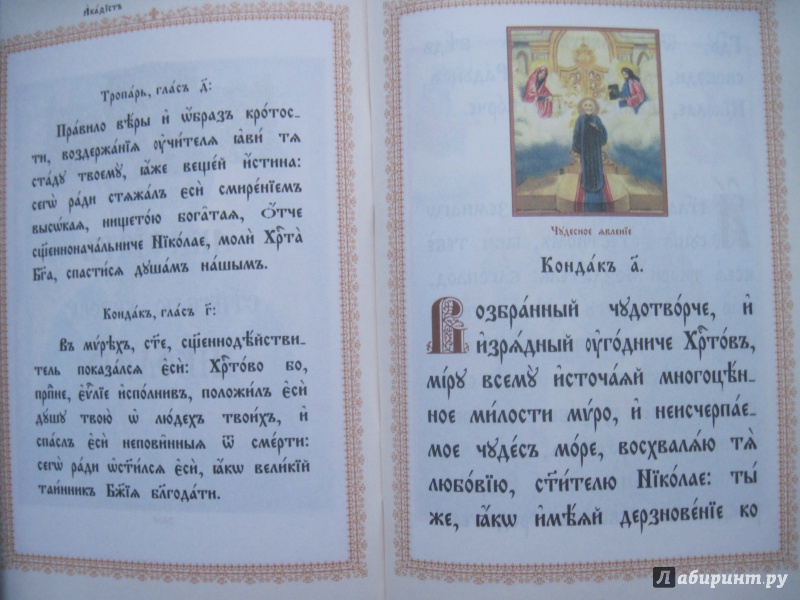 Акаѳістъ
Тропа́рь, гла́съ д҃:
Пра́вило вѣ́ры и҆ ѻ҆́бразъ кро́тос_
ти, воздержа́нїѧ ᲂу҆чи́телѧ ꙗ҆ви́ тѧ
ста́дꙋ твоемꙋ̀, ꙗ҆́же веще́й и҆́стина:
сегѡ̀ ра́ди стѧжа́лъ є҆сѝ смире́нїемъ
высѡ́каѧ, нището́ю бога́таѧ, Ѻ҆́тче
сщ҃е́нноначальниче Нїко́лае, молѝ Хрⷭ҇та̀
Бг҃а, спасти́сѧ дꙋша́мъ на́шымъ.
Конда́къ, гла́съ г҃:
Въ мѵ́рѣхъ, ст҃е, сщ҃еннодѣ́йстви_
тель показа́лсѧ є҆сѝ: Хрⷭ҇то́во бо,
прпⷣне, є҆ѵⷢ҇лїе и҆спо́лнивъ, положи́лъ є҆сѝ
дꙋ́шꙋ твою̀ ѡ҆ лю́дехъ твои́хъ, и҆
спа́слъ є҆сѝ непови́нныѧ ѿ сме́рти:
сегѡ̀ ра́ди ѡ҆ст҃и́лсѧ є҆сѝ, ꙗ҆́кѡ вели́кїй
таи́нникъ Бж҃їѧ блгⷣода́ти.
Чꙋдесное ꙗвленїе
Конда́къ а҃.
Возбра́нный чꙋдотво́рче, и҆
и҆зрѧ́дный ᲂу҆го́дниче Хрⷭ҇то́въ,
мі́рꙋ всемꙋ̀ и҆сточа́ѧй многоцѣ́н_
ное ми́лости мѵ́ро, и҆ неисчерпа́е_
мое чꙋде́съ мо́ре, восхвалѧ́ю тѧ̀
любо́вїю, ст҃и́телю Нїко́лае: ты́
же, ꙗ҆́кѡ и҆мѣ́ѧй дерзнове́нїе ко
Лабиринт.ру